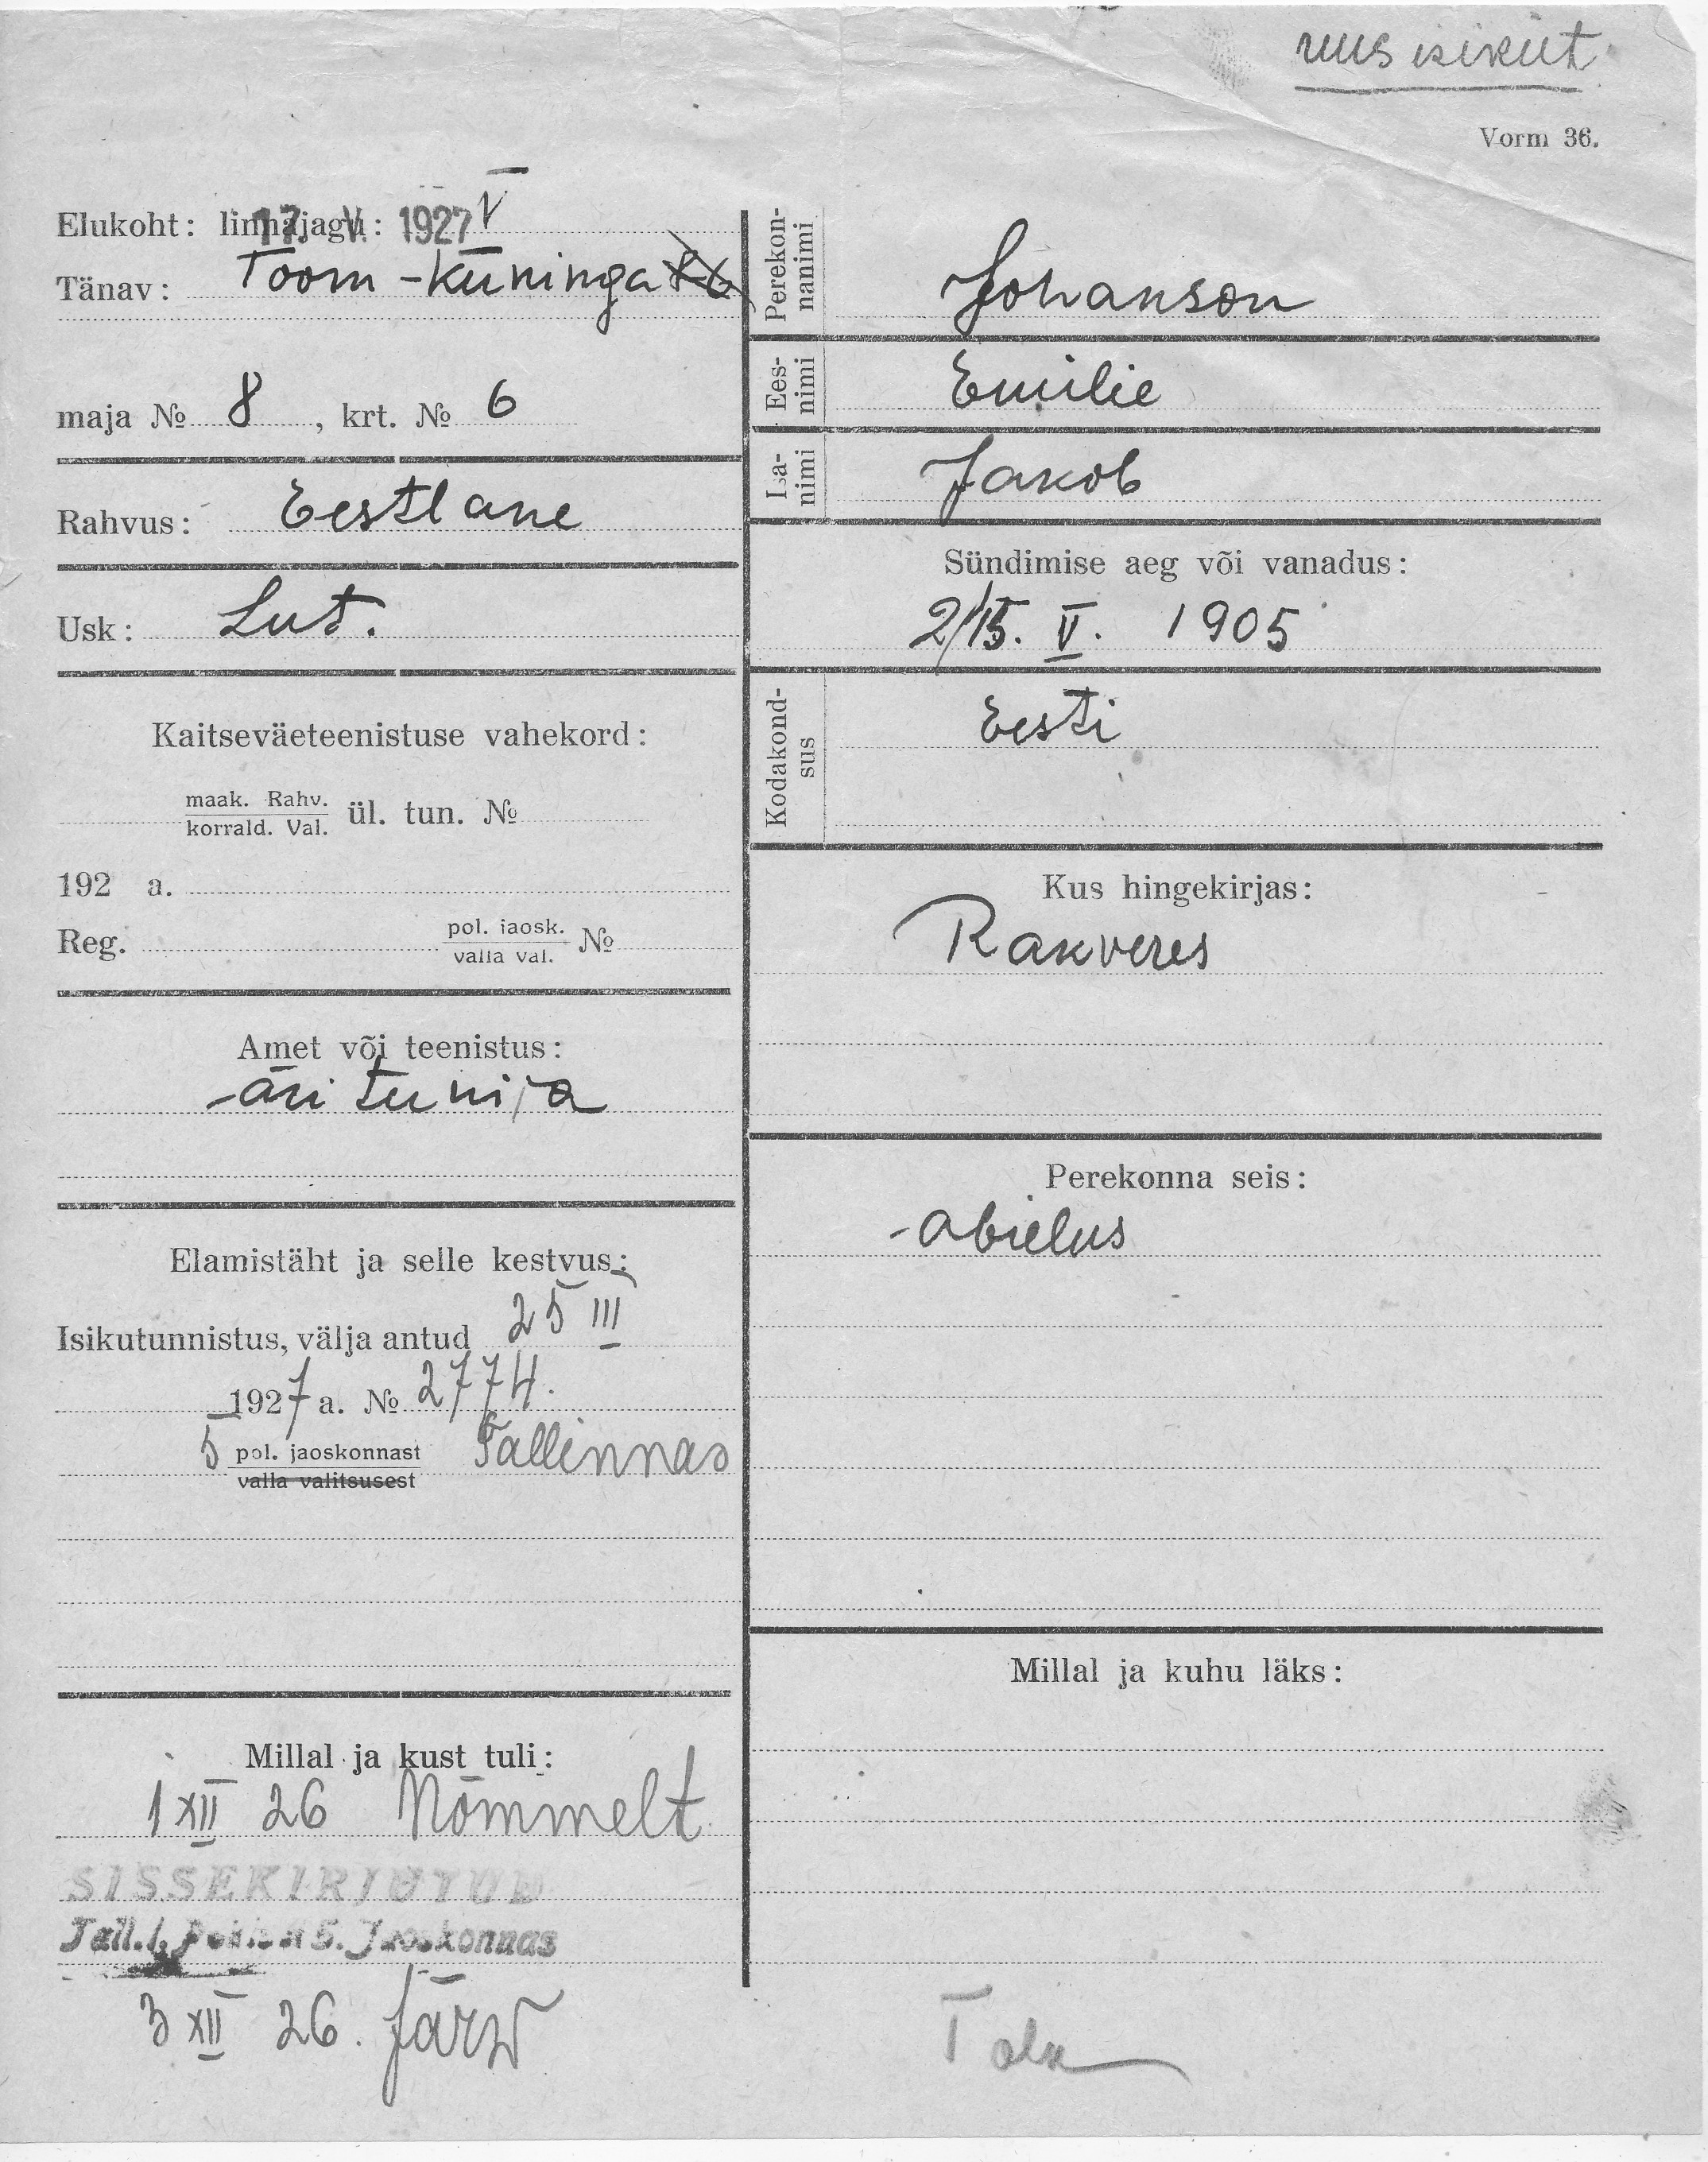 uus isikut
Vorm 36.
Elukoht: linnajagu: 17. V. 1927 V
Tänav: Toom-Kuninga
maja № 8, krt. № 6
Rahvus: Eestlane
Usk: Lut.
Kaitseväeteenistuse vahekord:
maak. Rahv.
korrald. Val. ül. tun. №
192 a.
Reg. pol. jaosk.
valla val. №
Amet või teenistus:
äri teenija
Elamistäht ja selle kestvus:
Isikutunnistus, välja antud 25 III
1927 a. № 2774.
5 pol. jaoskonnast Tallinnas
valla valitsusest
Millal ja kust tuli:
1 XII 26 Nõmmelt
SISSEKIRJUTUD
Tall. l. Politsei 5. Jaoskonnas
3 XII 26. Järw
Perekon-
nanimi
Johanson
Ees-
nimi
Emilie
Isa-
nimi
Jakob
Sündimise aeg või vanadus:
2/15. V. 1905
Kodakond-
sus
Eesti
Kus hingekirjas:
Rakveres
Perekonna seis:
abielus
Millal ja kuhu läks: